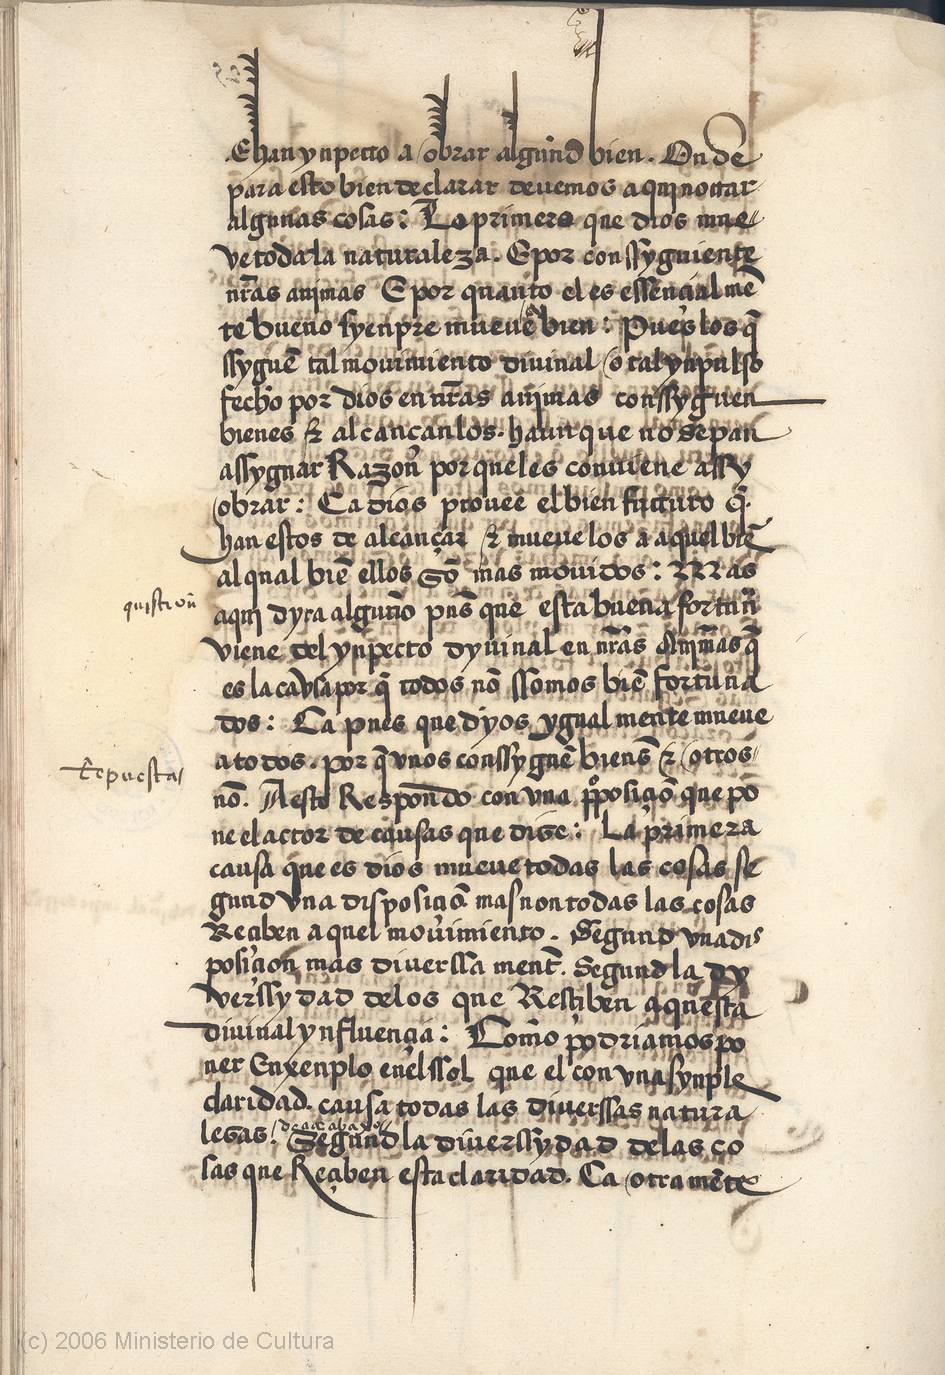 E han ynpetto a obrar algund bien. Onde
para esto bien declarar deuemos aqui notar
algunas cosas: Lo primero que dios mue
ve toda la naturaleza. E por conssyguiente
nr̃as animas E por quanto el es essencialmẽ
te bueno syenpre mueue a bien: Pues los q̃
ssyguẽ tal mouimiento diuinal o tal ynpulso
fecho por dios en nr̃as animas conssyguen
bienes & alcançanlos. haun que no sepan
assygnar Razoñ por que les conviene assy
obrar: Ca dios prouee el bien futuro q̃
han estos de alcançar & mueue los a aquel biẽ
al qual biẽ ellos sõ mas mouidos: Mas
aqui dyra alguño pus̃ que esta buena fortuñ
viene del ynpetto dyuinal en nr̃as animas q̃
es la cavsa por q̃ todos nõ ssomos biẽ fortuna
dos: Ca pues que dyos ygual mente mueue
a todos. por q̃ vnos conssyguẽ bienes̃ & otros
nõ. A esto Respondo con vna pr̃oposiçiõ que po
ne el actor de causas que dise: La primera
causa que es dios mueue todas las cosas se
gund vna disposiçiõ mas non todas las cosas
Reciben aquel mouimiento. Segund vna dis
posiçion mas diuerssa ment̃. Segund la dy
verssydad delos que Resciben aquesta
diuinal ynfluençia: Como podriamos po
ner Enxenplo enel ssol que el con vna synple
claridad. causa todas las diuerssas natura
lesas. de aca abaxo Segund la diuerssydad delas co
sas que Reçiben esta claridad. Ca otra mẽte
quistioñ
Repuesta
(c) 2006 Ministerio de Cultura